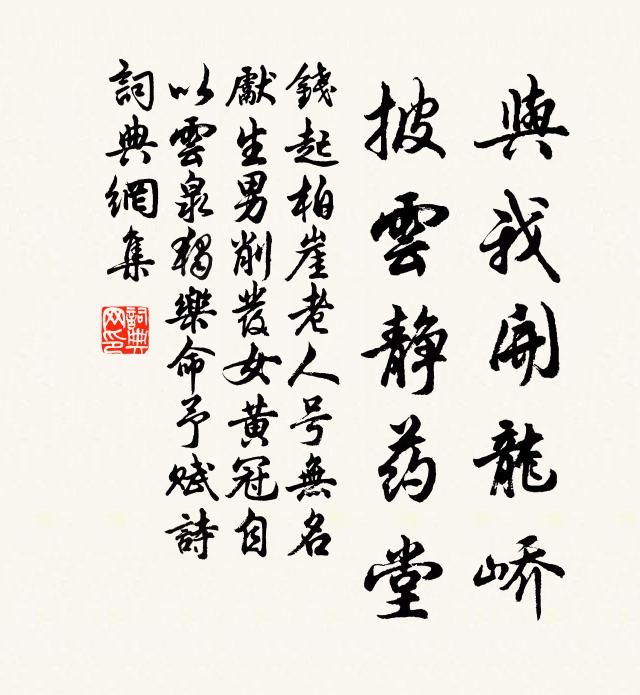 與我開龍嶠
披雲静药堂
錢起柏崖老人号無名
獻生男削发女黄冠自
以雲泉獨樂命予赋詩
詞典網集
詞典网印